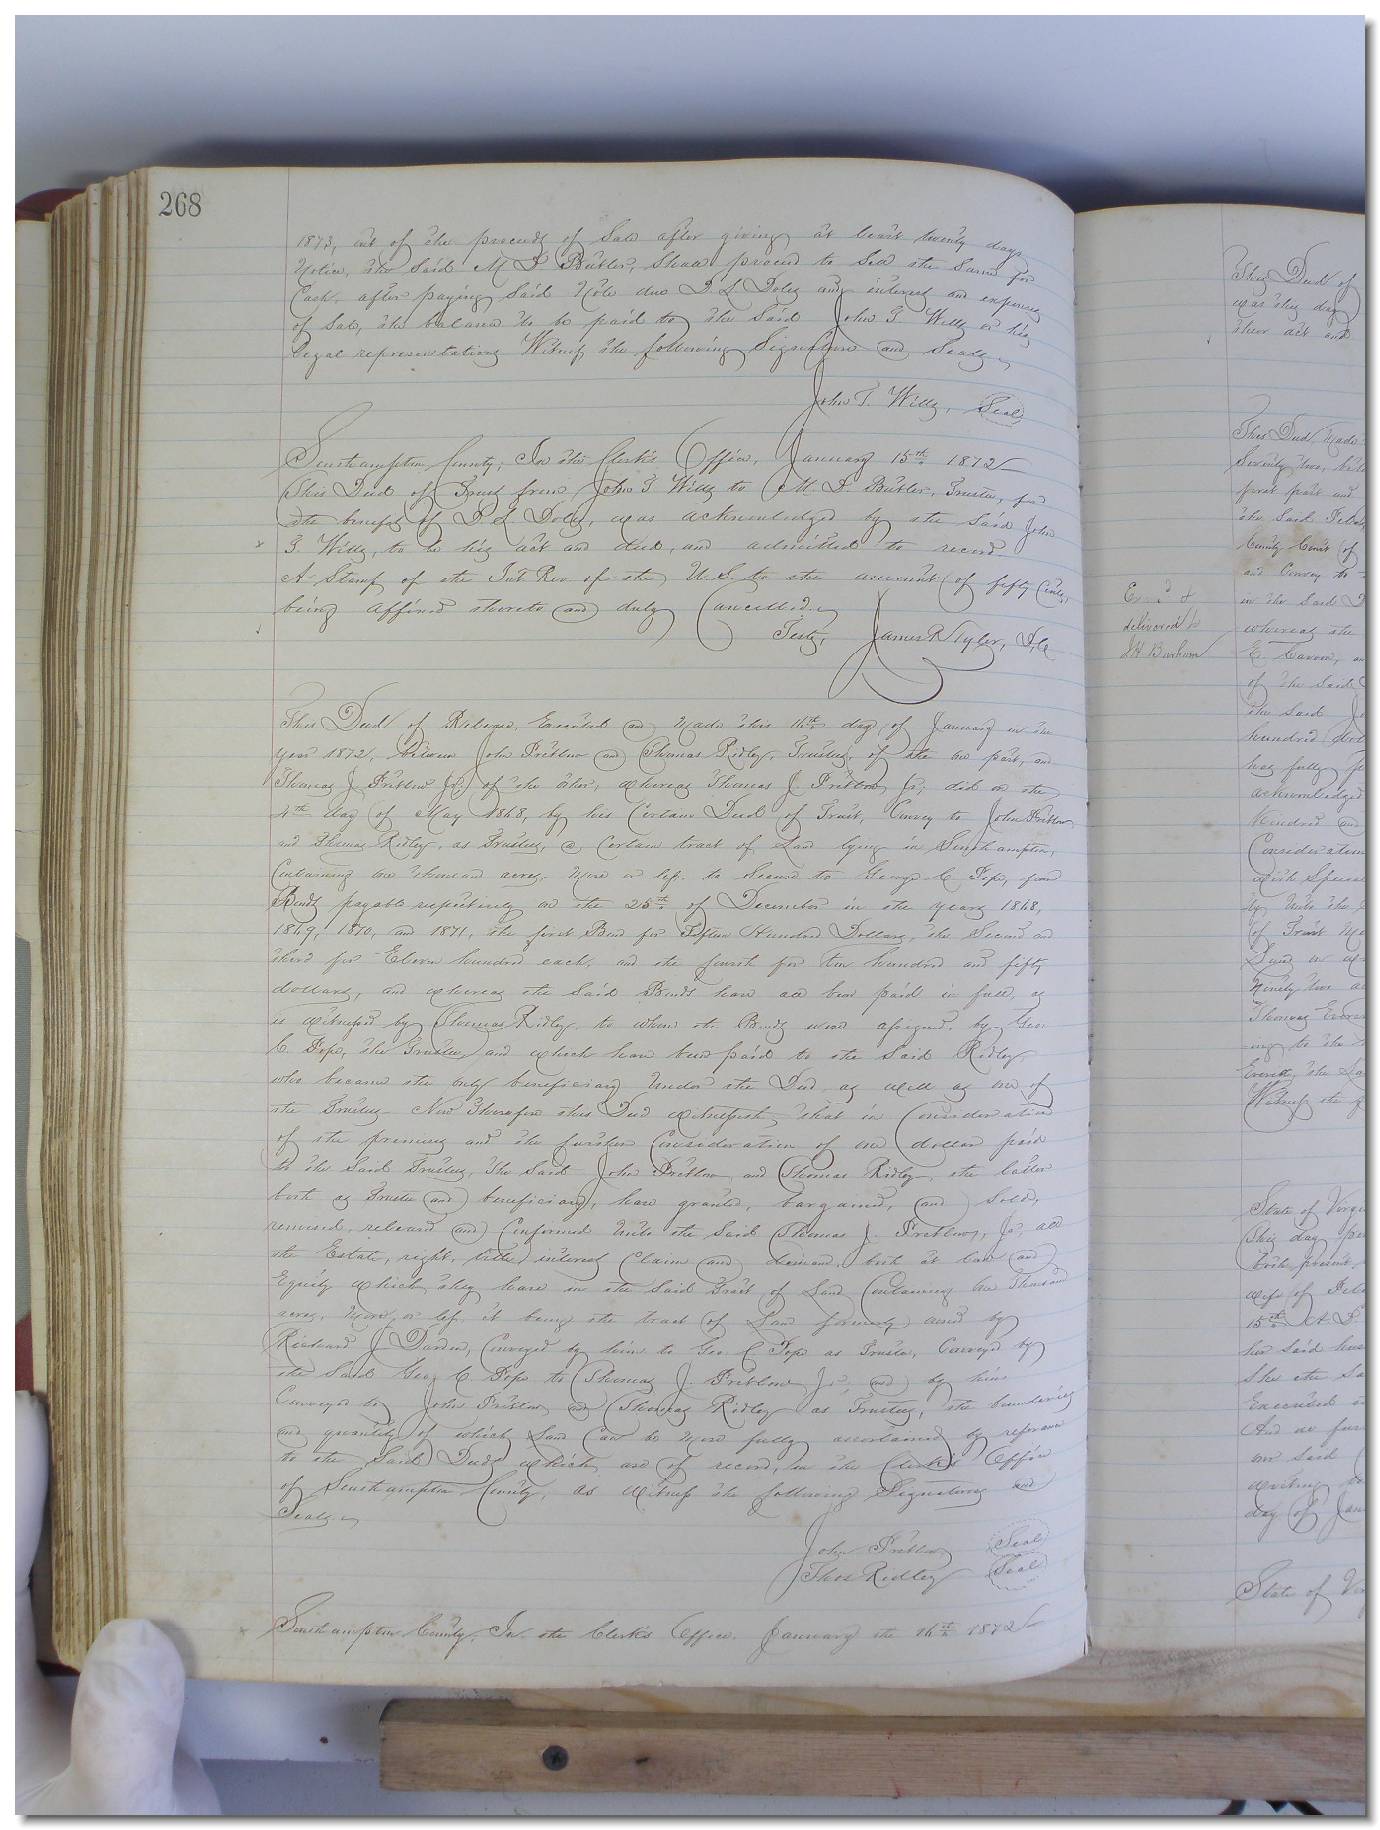 268
1873, out of the proceeds of Sale after giving at least twenty days
Notice, the Said M D Butler, Shall proceed to Sell the Same for
Cash. after paying Said Note due D. L Doles and interest and expenses
of Sale, the balance to be paid to the Said John T. Wills or his
legal representatives Witness the following Signature and Seal
John T. Wills, Seal
Southampton County, In the Clerk's Office, January 15th 1872
This Deed of Trust from John T Wills to M. D. Butler, Trustee, for
the benefit of D L Doles, was acknowledged by the Said John
T. Wills, to be his act and deed, and admitted to record
A Stamp of the Int Rev of the U.S. to the amount of fifty Cents,
being affixed thereto and duly Cancelled.
Teste, James R Tyler, D,C
This Deed of Release, Executed and Made this 16th day of January in the
year 1872, between John Pretlow and Thomas Ridley, Trustees, of the one part, and
Thomas J. Pretlow Jr; of the other, Whereas Thomas J. Pretlow Jr; did on the
4th day of May 1868, by his Certain Deed of Trust, Convey to John Pretlow
and Thomas Ridley, as Trustees, a Certain tract of Land lying in Southampton,
Containing one thousand acres, More or less. to Secure to George C Pope, four
Bonds payable respectively on the 25th of December in the years 1868,
1869, 1870, and 1871, the first Bond for Fifteen Hundred Dollars, the Second and
third for Eleven hundred each, and the fourth for ten hundred and fifty
dollars, and whereas the Said Bonds have all been paid in full, as
is witnessed by Thomas Ridley. to whom the Bonds were assigned, by Geo.
C. Pope, the Trustee and which have been paid to the Said Ridley
who became the only beneficiary Under the Deed as well as one of
the Trustees. Now Therefore this Deed witnesseth, that in Consideration
of the premises and the further Consideration of one dollar paid
to the Said Trustees, The Said John Pretlow and Thomas Ridley, the latter
both as Trustee and beneficiary, have granted, bargained, and Sold,
remised, released and Confirmed Unto the Said Thomas J. Pretlow, Jr, all
the Estate, right, title, interest Claim and demand, both at law and
Equity which they have in the Said Tract of Land Containing One Thousand
acres, More or less it being the tract of Land formerly owned by
Richard J Darden, Conveyed by him to Geo. C Pope as Trustee, Conveyed by
the Said Geo, C. Pope to Thomas J. Pretlow, Jr, and by him
Conveyed to John Pretlow and Thomas Ridley as Trustees, the boundaries
and quantity of which Land Can be More fully ascertained by reference
to the Said Deeds which are of record, in the Clerk's Office
of Southampton County, as Witness the following Signatures and
Seals,
John Pretlow Seal
Thos Ridley Seal
Southampton County, In the Clerk's Office. January the 16th 1872
This Deed of
was this day
their act and
This Deed Made
Seventy two, bet
first part and
the Said
County Court of
and Convey to
in the Said
whereas the
delivered to
of the Said
the Said
hundred
has fully
acknowledged
Kindred and
Consideration
Unto the
of Trust
Land
Ninety two
Thomas
to the
Everett, the
Witness the
State of Virgi
This day
both present,
wife of
15th A D
her Said hus
She the Sa
Executed
And
Said
writing
day of Jan
State of V